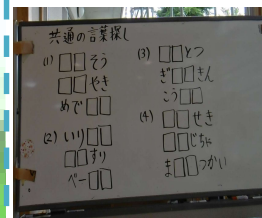 共通の言葉探し
(1) □□そう
□□やき
めで□□
(2) いり□□
□□すり
べー□□
(3) □□とつ
ぎ□□きん
こう□□
(4) □□せき
□□じちゃ
ま□□つかい